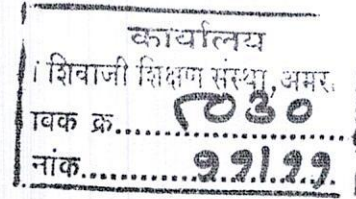 कार्यालय
। शिवाजी शिक्षण संस्था, अमर.
ावक क्र....८०३०
नांक....११/११